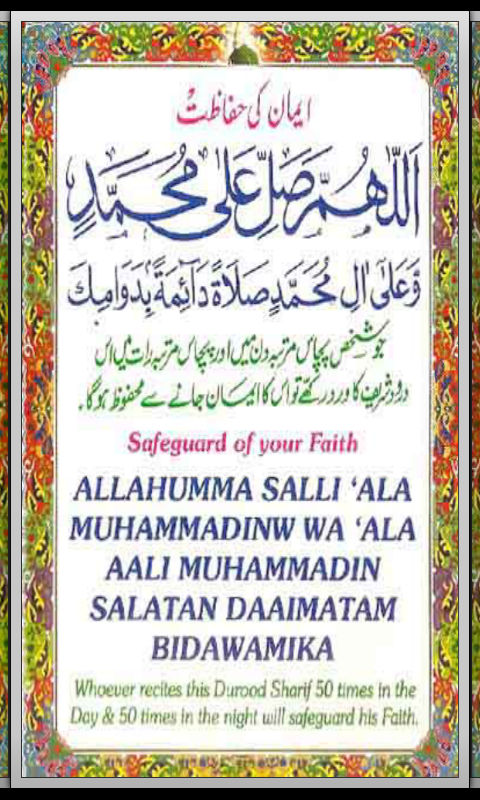 ایمان کی حفاظت
اَللّٰهُمَّ صَلِّ عَلٰی مُحَمَّدٍ
وَّعَلٰٓی اٰلِ مُحَمَّدٍ صَلَاةً دَآئِمَةً بِۢدَوَامِكَ
جو شخص پچاس مرتبہ دن میں اور پچاس مرتبہ رات میں اس
درود شریف کا ورد رکھے تو اس کا ایمان جانے سے محفوظ ہوگا۔
Safeguard of your Faith
ALLAHUMMA SALLI ‘ALA
MUHAMMADINW WA ‘ALA
AALI MUHAMMADIN
SALATAN DAAIMATAM
BIDAWAMIKA
Whoever recites this Durood Sharif 50 times in the
Day & 50 times in the night will safeguard his Faith.